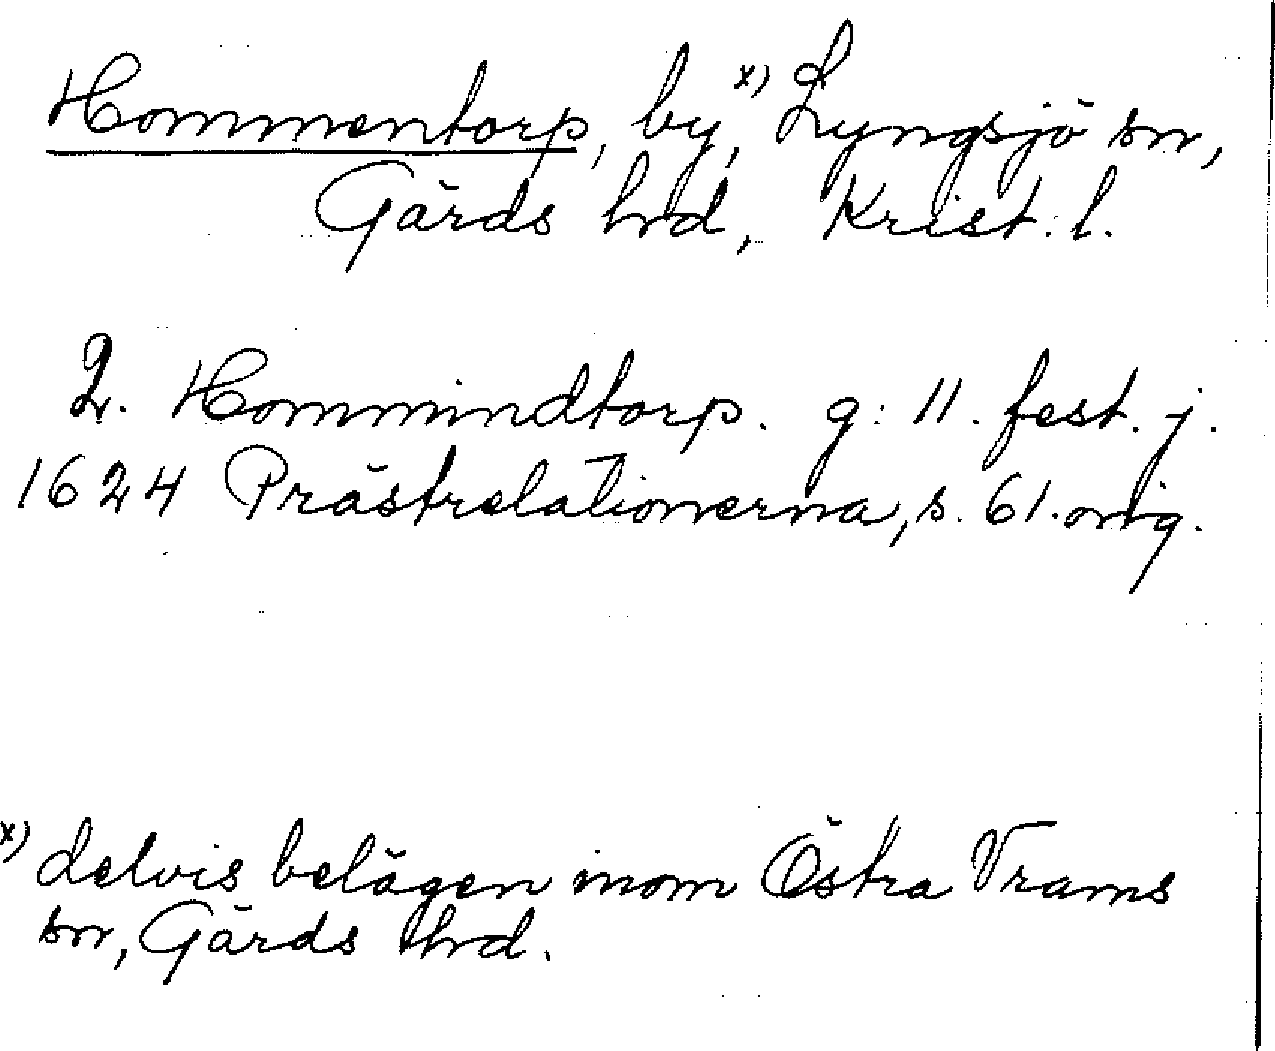 Hommentorp, by,x) Lyngsjö sn,
Gärds hrd, Krist. l.
2. Hommindtorp. g: 11. fest. j.
1624 Prästrelationerna, s. 61. orig.
x) delvis belägen inom Östra Vrams
sn, Gärds hrd.